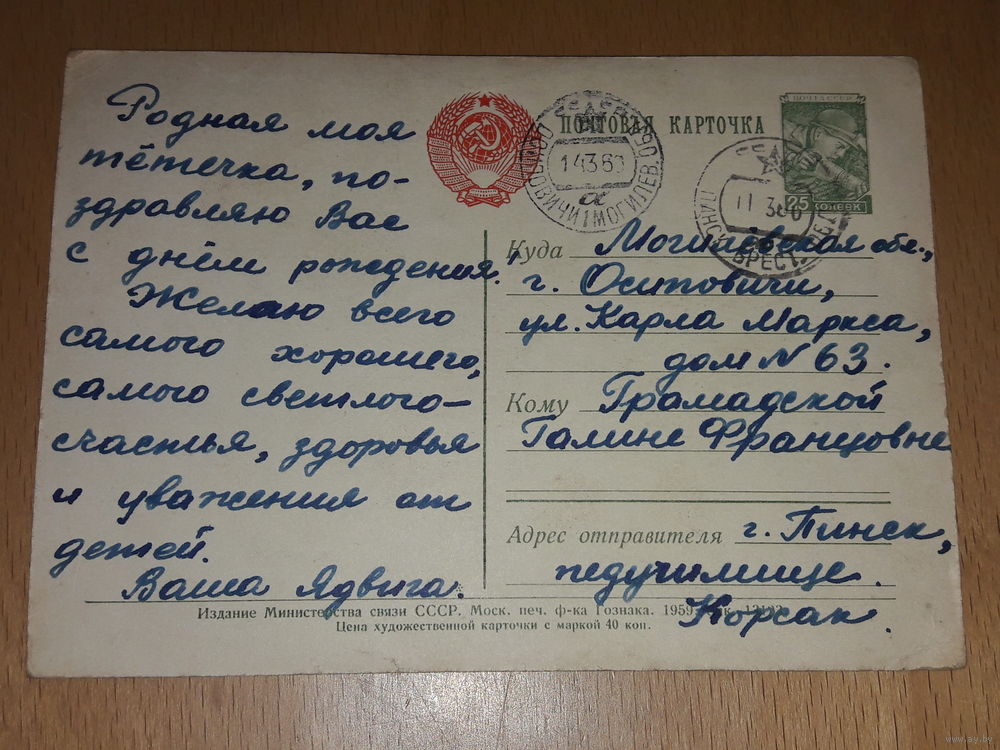 ПОЧТОВАЯ КАРТОЧКА
ПОЧТА СССР
25 КОПЕЕК
14 3 60
ОСИПОВИЧИ МОГИЛЕВ. ОБЛ
а
11 3 60
ПИНСК БРЕСТ.
Родная моя
тётечка, по-
здравляю Вас
с днём рождения.
Желаю всего
самого хорошего,
самого светлого-
счастья, здоровья
и уважения от
детей.
Ваша Ядвига.
Куда Могилёвская обл.,
г. Осиповичи,
ул. Карла Маркса,
дом N 63.
Кому Грамадской
Галине Францовне
Адрес отправителя г. Пинск,
педучилище.
Корсак.
Издание Министерства связи СССР. Моск. печ. ф-ка Гознака. 1959.
Цена художественной карточки с маркой 40 коп.
www.ay.by